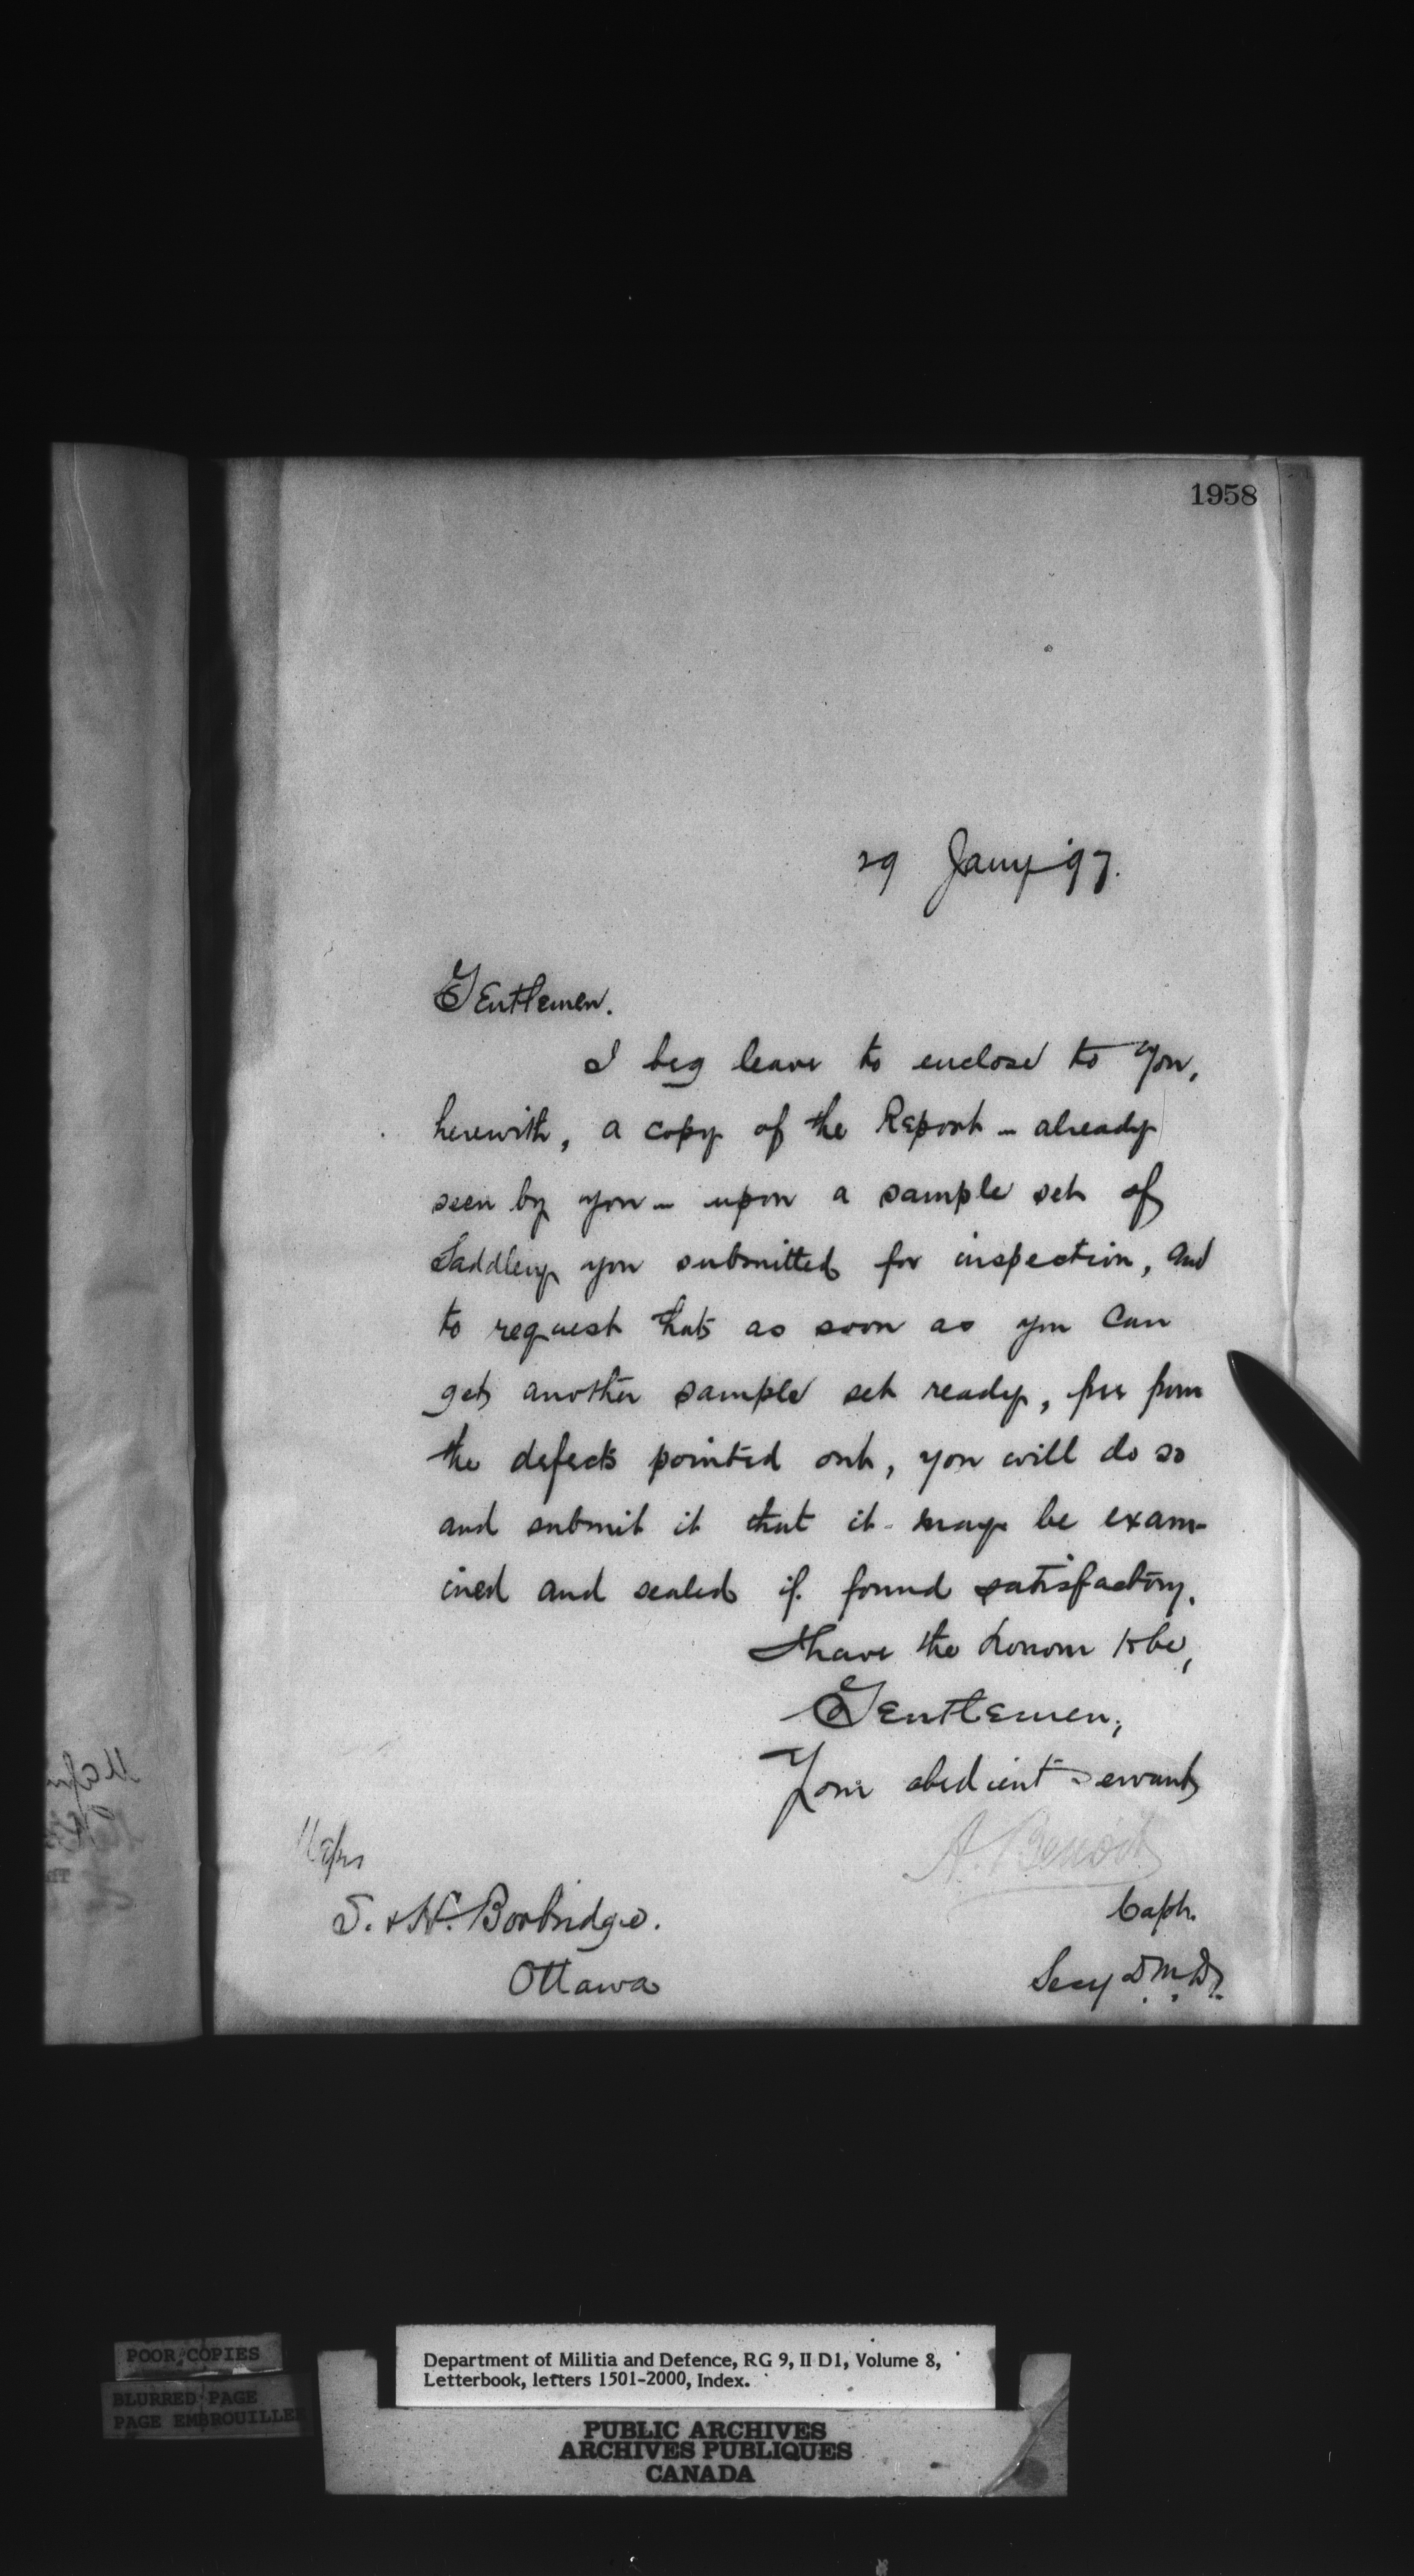 1958
29 Jany '97.
Gentlemen.
I beg leave to enclose to you,
herewith, a copy of the Report - already
seen by you - upon a sample set of
Saddlery you submitted for inspection, and
to request that as soon as you can
get another sample set ready, free from
the defects pointed out, you will do so
and submit it that it may be exam-
ined and sealed if found satisfactory.
I have the honour to be,
Gentlemen,
Your obedient servant
A. Benoit
Capt.
Secy D.M.D.
S. & H. Borbridge.
Ottawa
POOR COPIES
BLURRED PAGE
PAGE EMBROUILLEE
Department of Militia and Defence, RG 9, II D1, Volume 8,
Letterbook, letters 1501-2000, Index.
PUBLIC ARCHIVES
ARCHIVES PUBLIQUES
CANADA